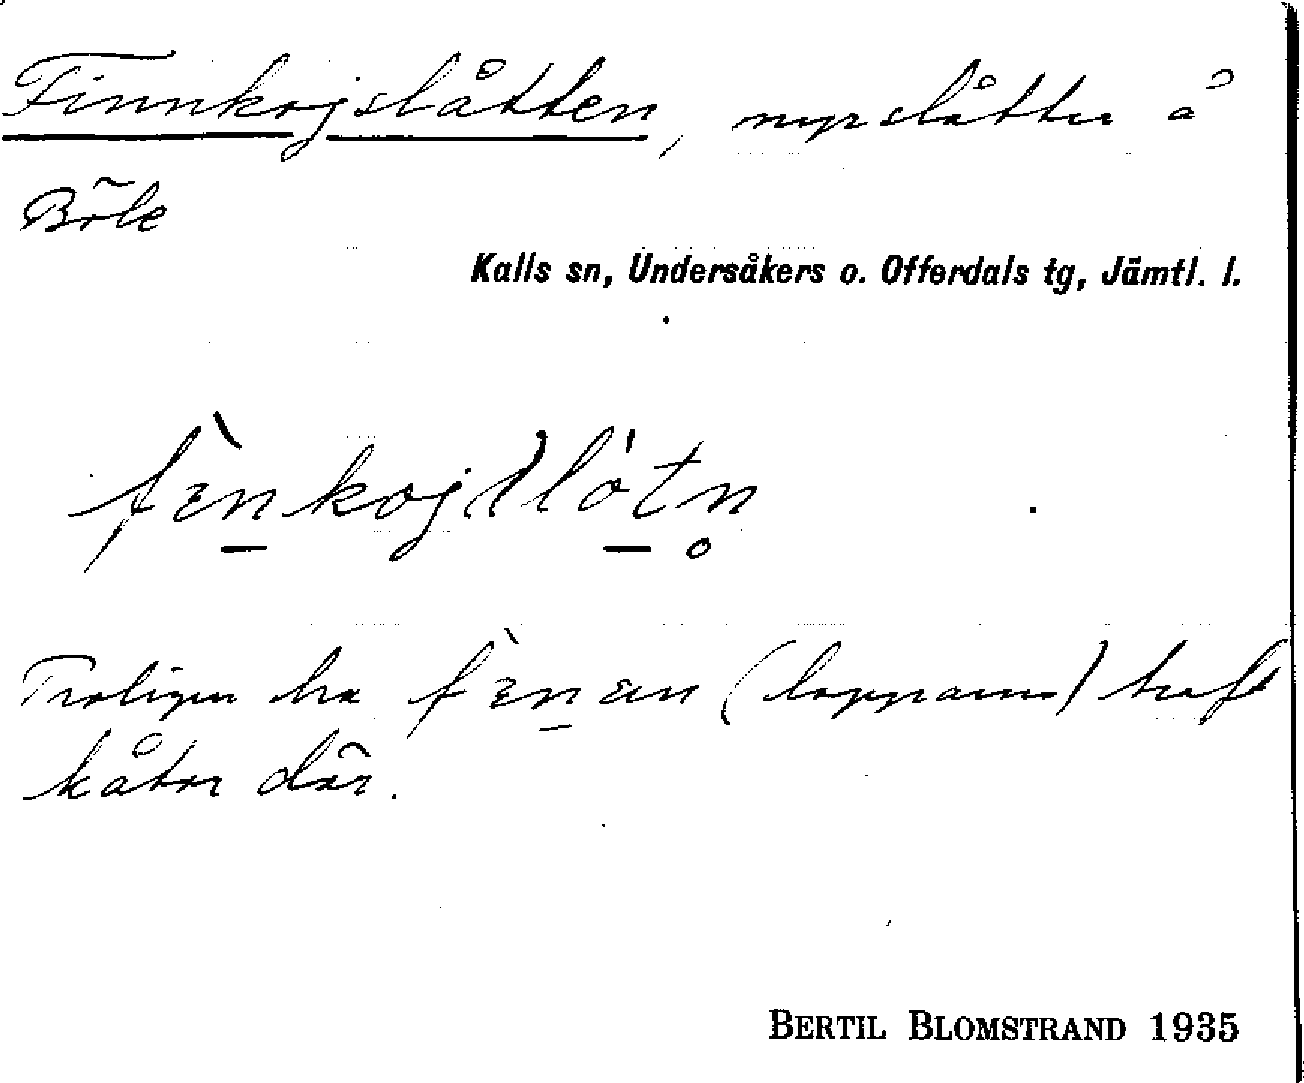 Finnkojslåtten, myrslåtter å
Böle
Kalls sn, Undersåkers o. Offerdals tg, Jämtl. l.
fènkojslótn
Troligen ha fènan (lapparna) haft
kåtor där.
BERTIL BLOMSTRAND 1935